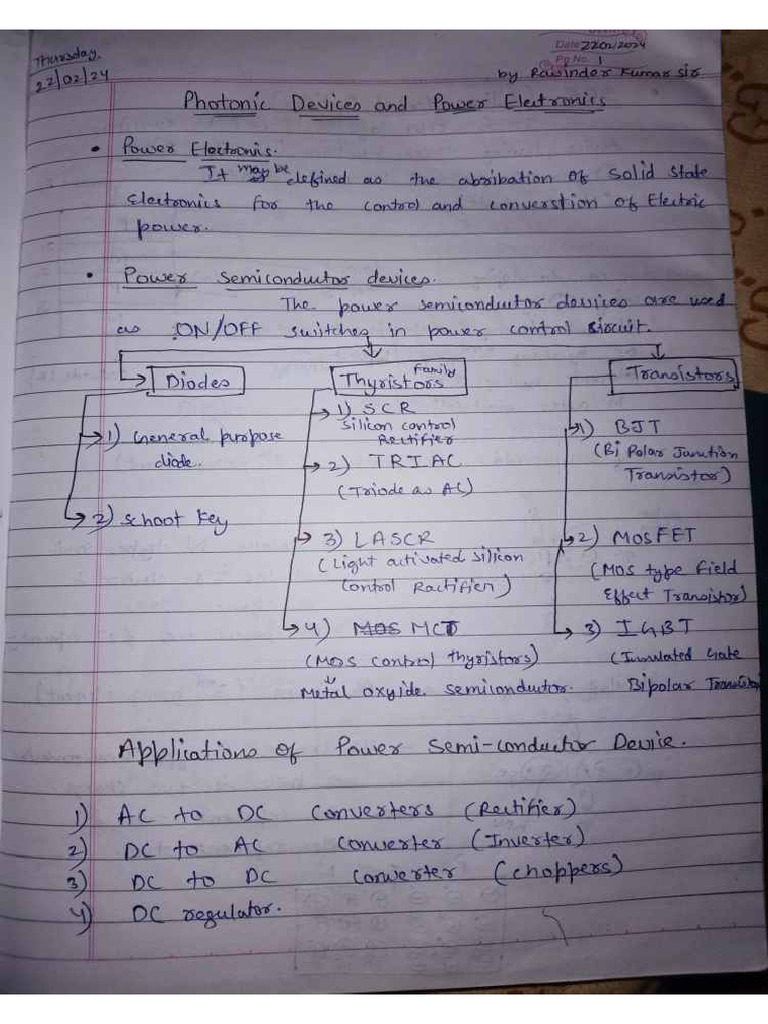 Thursday.
22/02/24
Date 22/02/2024
Pg No. 1
by Rawinder Kumar sir
Photonic Devices and Power Electronics
• Power Electronics.
It may be defined as the abribation of solid state
Electronics for the control and converstion of Electric
power.
• Power semiconductor devices.
The power semiconductor devices are used
as ON/OFF switches in power control circuit.
Diodes
Thyristors Family
Transistors
1) General purpose
diode.
2) Schoot key
1) SCR
Silicon control
Rectifier
2) TRIAC
(Triode as AC)
3) LASCR
(Light activated silicon
control Ractifier)
4) MCT
(MOS control thyristors)
Metal oxyide semiconductor.
1) BJT
(Bi Polar Junution
Transistor)
2) MOSFET
(MOS type field
Effect Transistor)
3) IGBT
(Inuulated Gate
Bipolar Transistor
Applications of Power Semi-conductor Device.
1) AC to DC Converters (Rectifier)
2) DC to AC Converter (Inverter)
3) DC to DC Converter (choppers)
4) DC regulator.